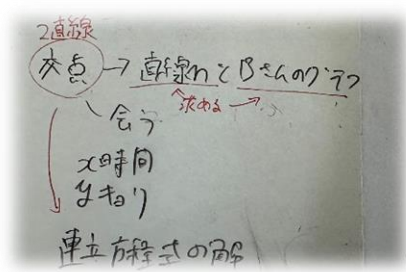 2直線
交点 → 直線nとBさんのグラフ
求める →
会う
x時間
yキョリ
連立方程式の解